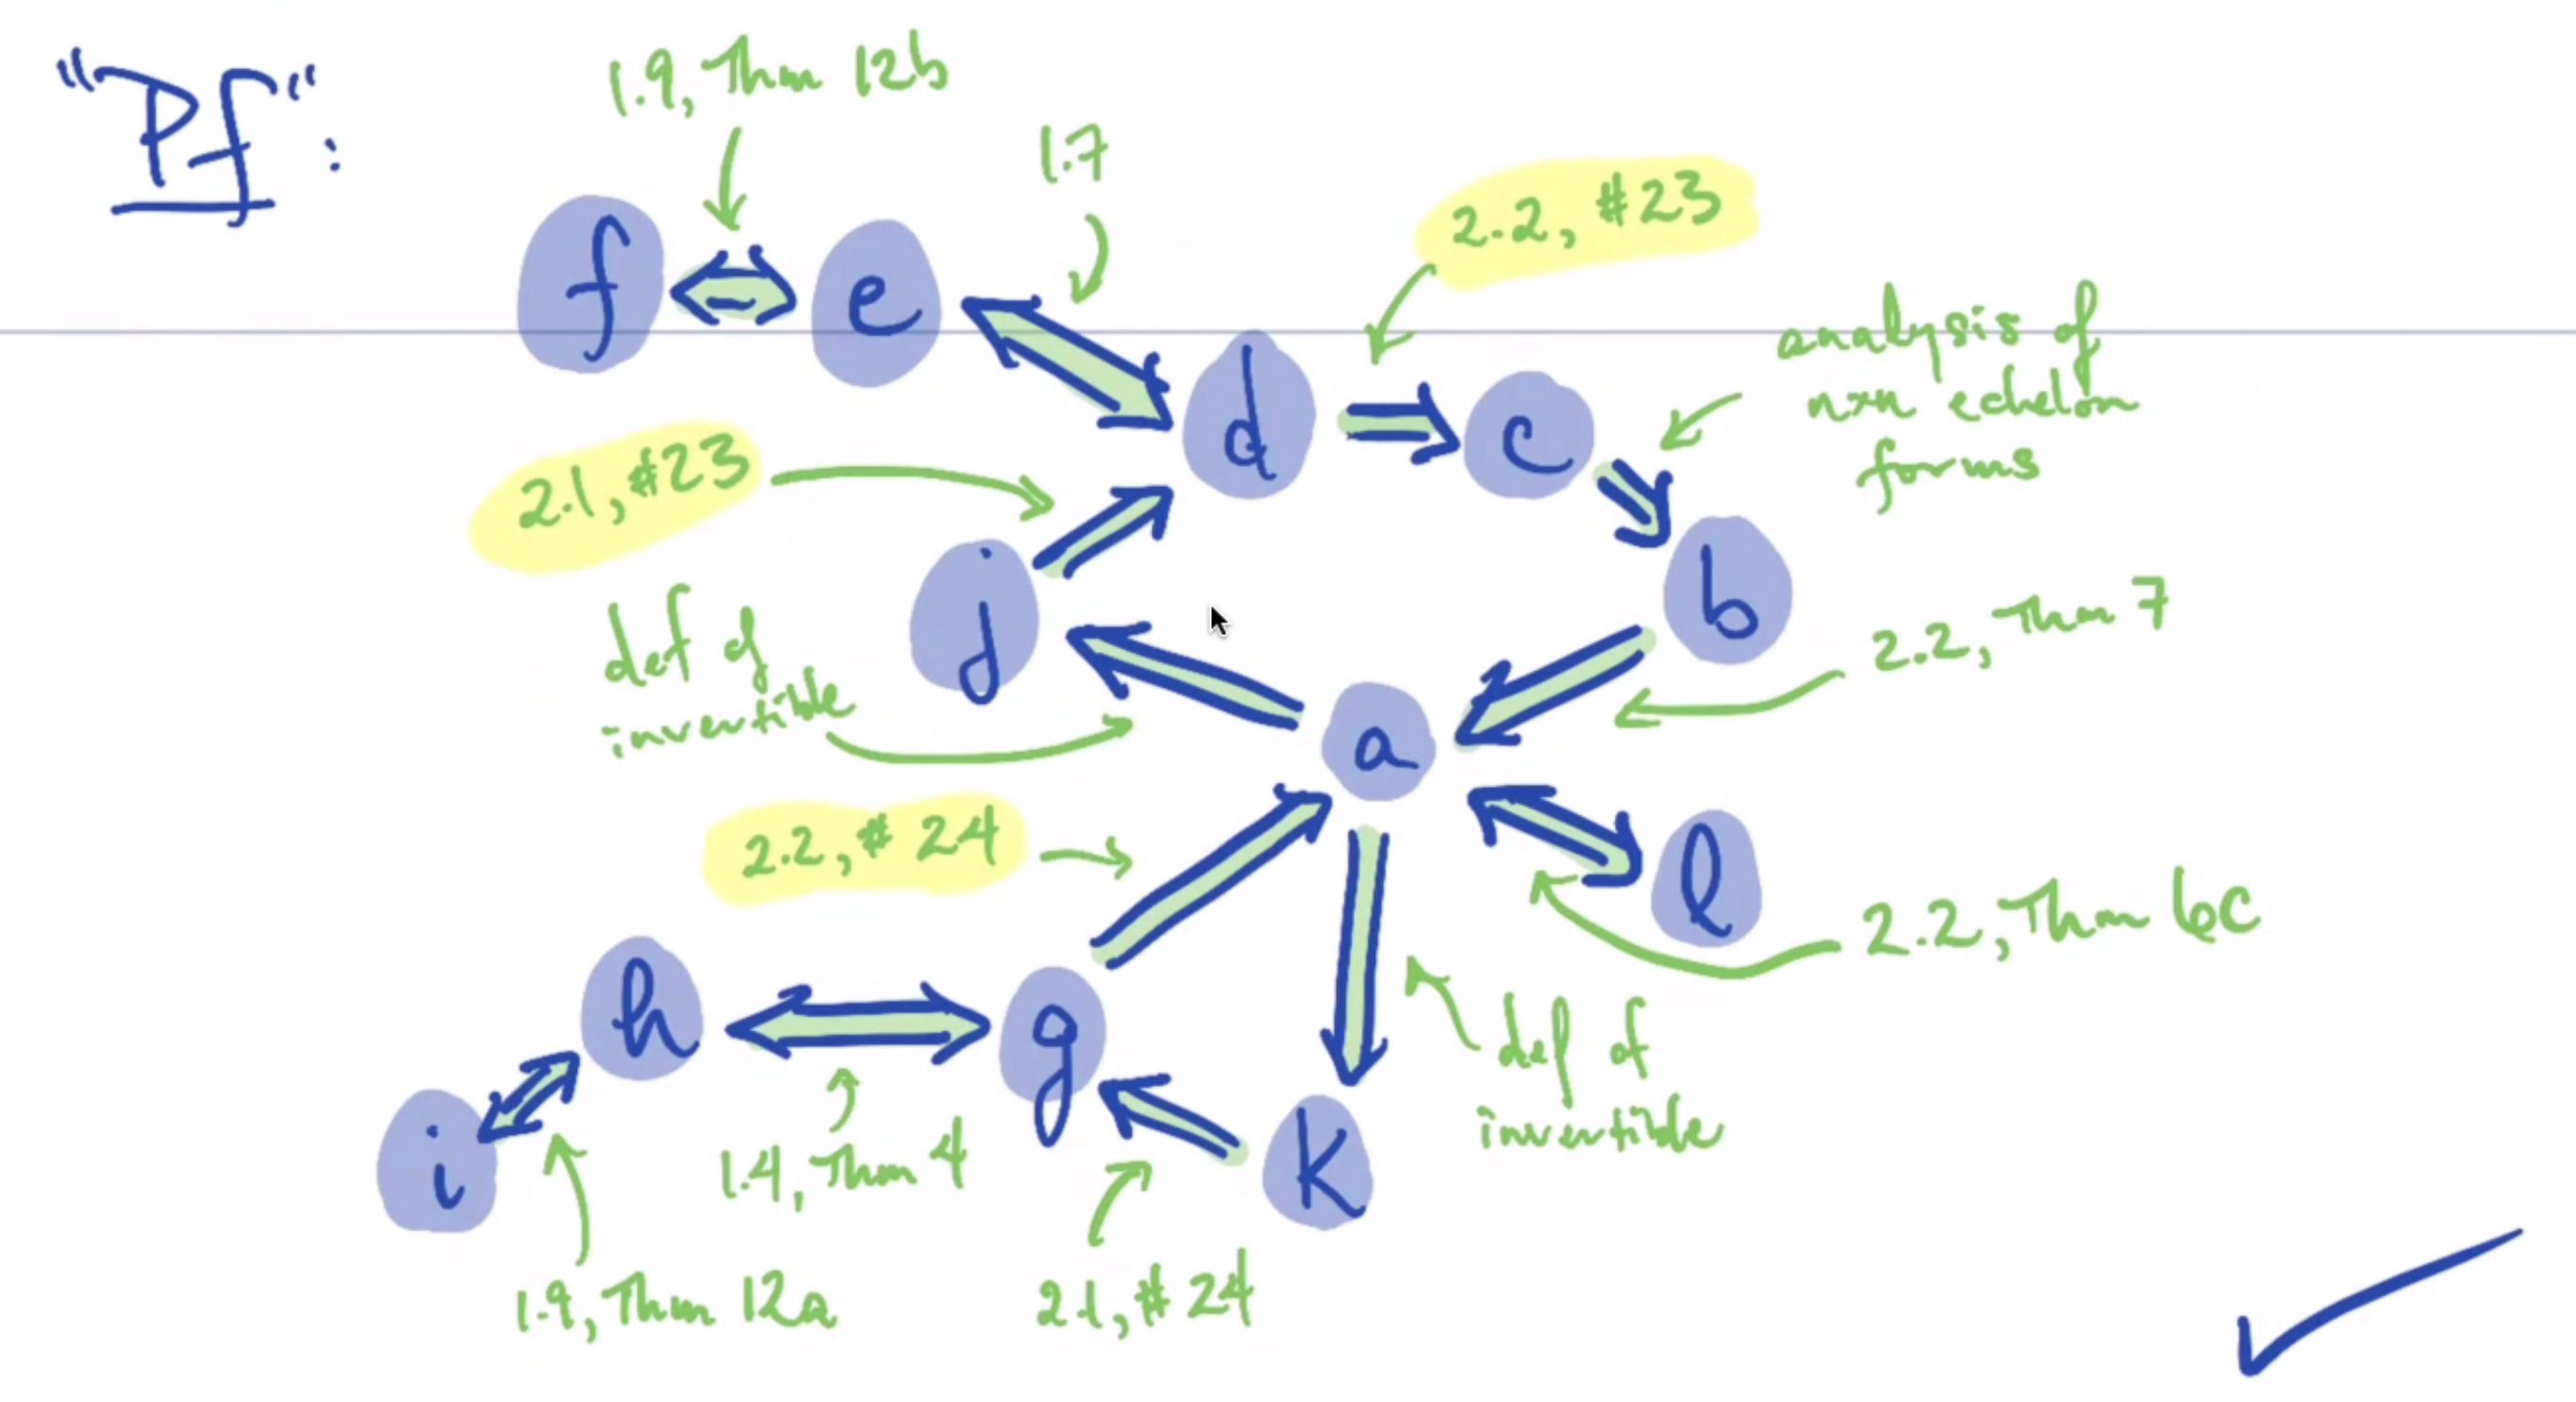 "Pf":
1.9, Thm 12b
1.7
2.2, #23
f
e
d
c
analysis of
nxn echelon
forms
2.1, #23
j
b
def of
invertible
2.2, Thm 7
a
2.2, # 24
l
2.2, Thm 6c
h
g
def of
invertible
i
1.4, Thm 4
k
1.9, Thm 12a
2.1, # 24